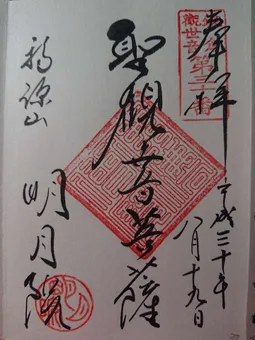 奉拝
平成三十年
八月十九日
観世音第三十番
聖観世音菩薩
福源山
明月院